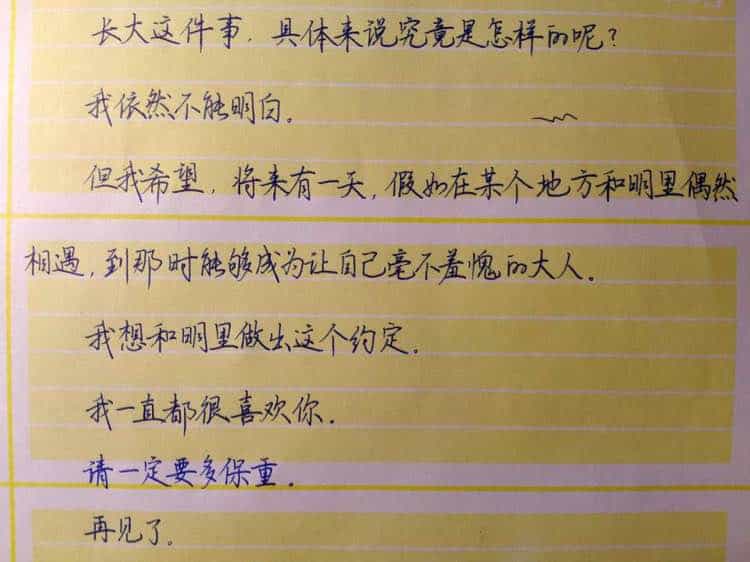 长大这件事，具体来说究竟是怎样的呢？
我依然不能明白。
但我希望，将来有一天，假如在某个地方和明里偶然
相遇，到那时能够成为让自己毫不羞愧的大人。
我想和明里做出这个约定。
我一直都很喜欢你。
请一定要多保重。
再见了。